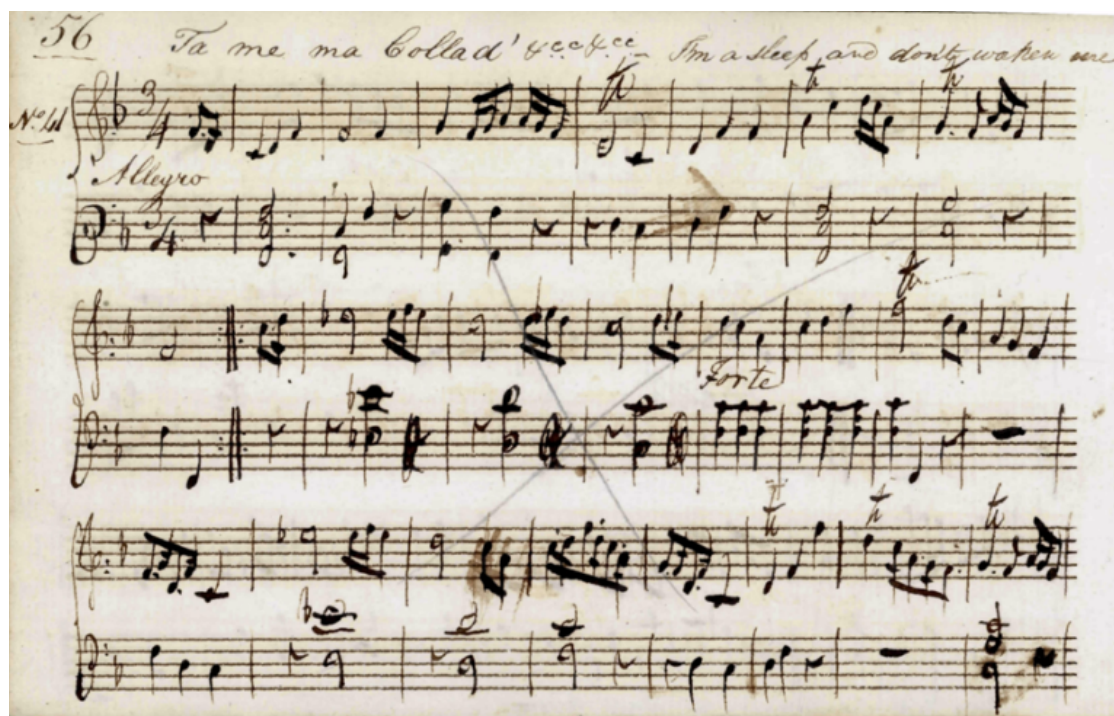 56
Ta me ma Collad' &cc &cc - I'm a sleep and don't waken me
No. 41
3/4
Allegro
3/4
Forte